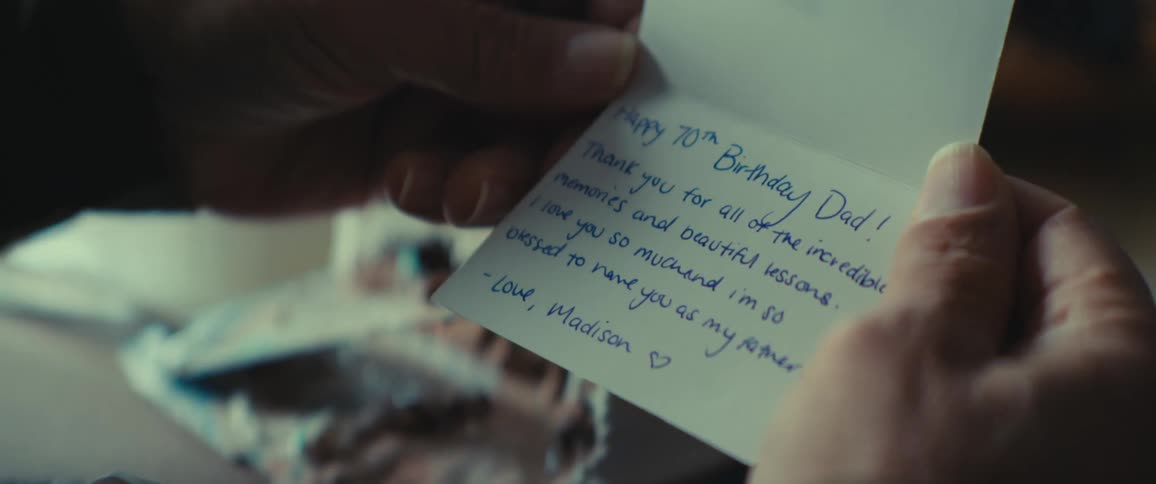 Happy 70th Birthday Dad!
Thank you for all of the incredible
memories and beautiful lessons.
I love you so much and i'm so
blessed to have you as my father
- Love, Madison ♡